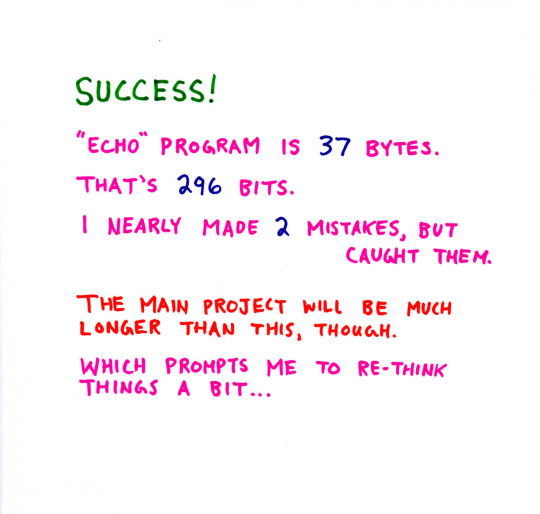 SUCCESS!
"ECHO" PROGRAM IS 37 BYTES.
THAT'S 296 BITS.
I NEARLY MADE 2 MISTAKES, BUT
CAUGHT THEM.
THE MAIN PROJECT WILL BE MUCH
LONGER THAN THIS, THOUGH.
WHICH PROMPTS ME TO RE-THINK
THINGS A BIT...